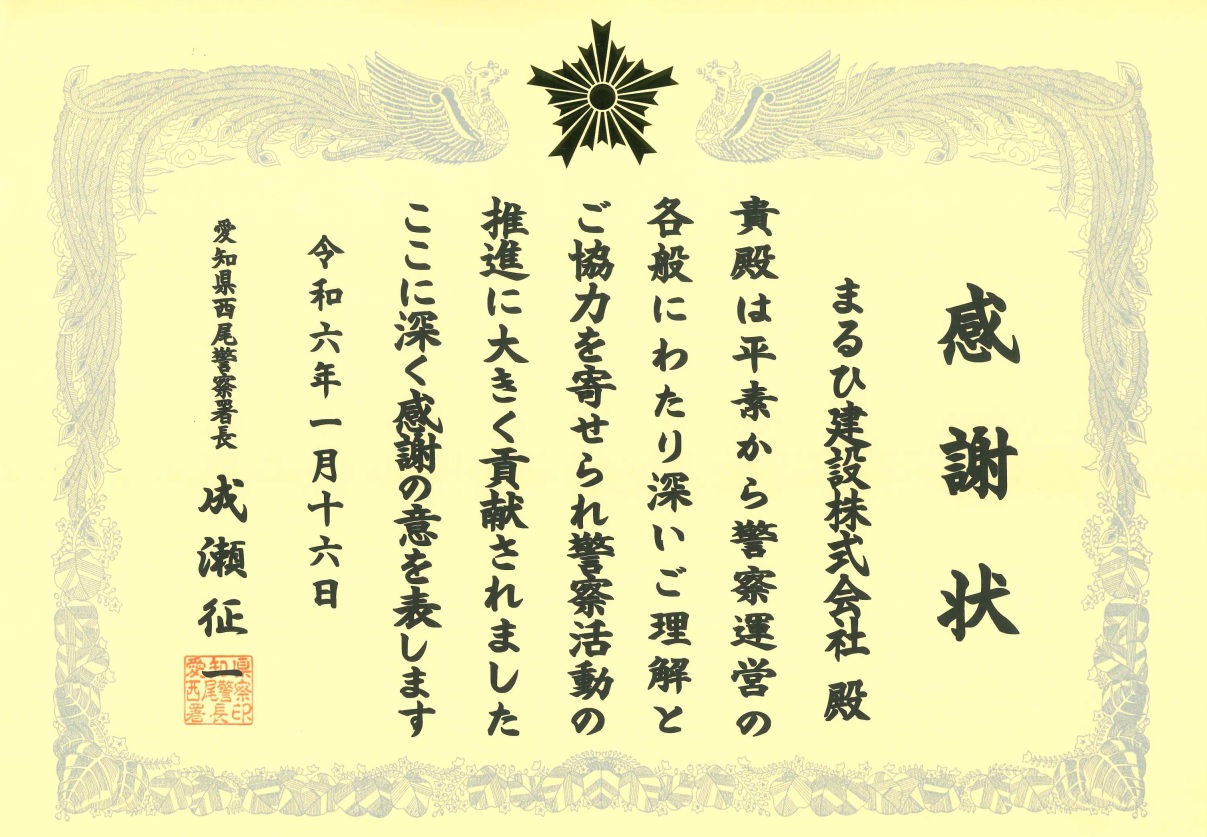 感謝状
まるひ建設株式会社 殿
貴殿は平素から警察運営の
各般にわたり深いご理解と
ご協力を寄せられ警察活動の
推進に大きく貢献されました
ここに深く感謝の意を表します
令和六年一月十六日
愛知県西尾警察署長 成瀬征一
愛知県
西尾警察
署長印